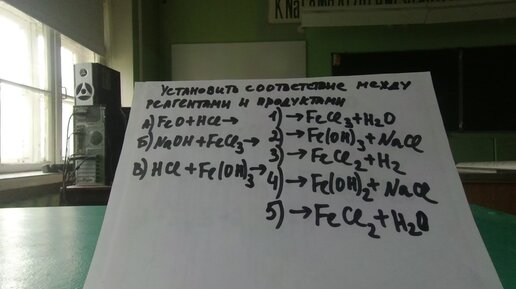 УСТАНОВИТЬ СООТВЕТСТВИЕ МЕЖДУ
РЕАГЕНТАМИ И ПРОДУКТАМИ
А) FeO + HCl →
Б) NaOH + FeCl₃ →
В) HCl + Fe(OH)₃ →
1) → FeCl₃ + H₂O
2) → Fe(OH)₃ + NaCl
3) → FeCl₂ + H₂
4) → Fe(OH)₂ + NaCl
5) → FeCl₂ + H₂O
K Na